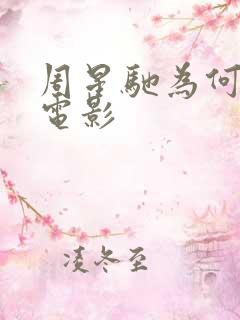 周星馳為何
電影
凌冬至